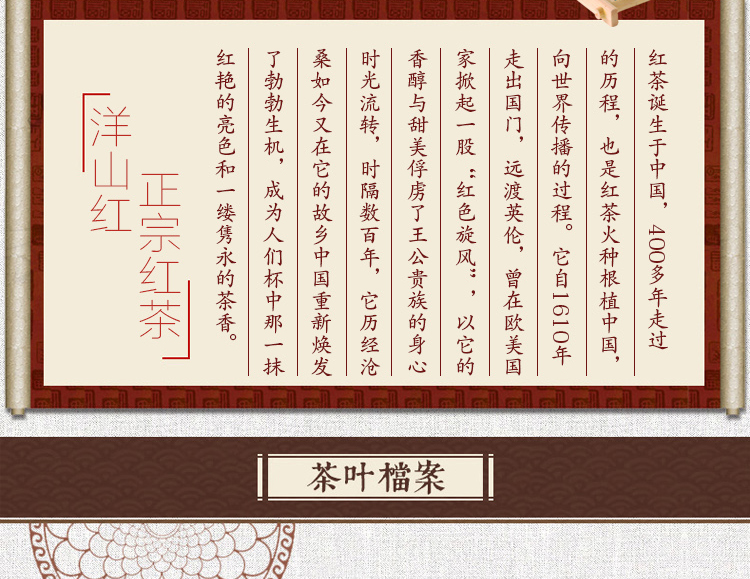 红茶诞生于中国，400多年走过
的历程，也是红茶火种根植中国，
向世界传播的过程。它自1610年
走出国门，远渡英伦，曾在欧美国
家掀起一股“红色旋风”，以它的
香醇与甜美俘虏了王公贵族的身心
时光流转，时隔数百年，它历经沧
桑如今又在它的故乡中国重新焕发
了勃勃生机，成为人们杯中那一抹
红艳的亮色和一缕隽永的茶香。
正宗红茶
洋山红
茶叶檔案